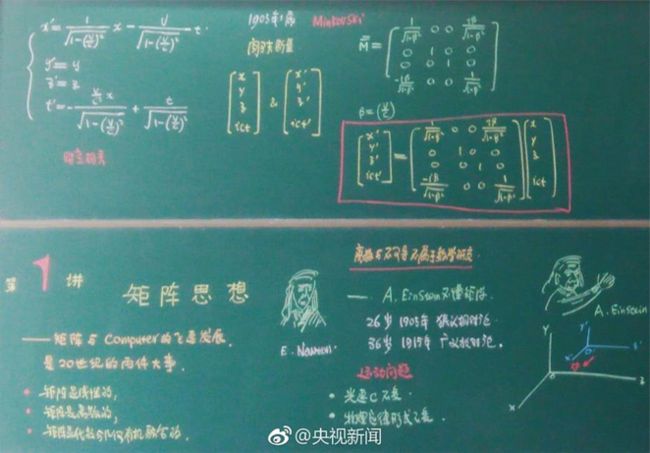 x' = 1/√(1-(v/c)²) x - v/√(1-(v/c)²) t.
y' = y
z' = z
t' = - (v/c² x)/√(1-(v/c)²) + t/√(1-(v/c)²)
Minkovski
[x y z ict] & [x' y' z' ict']
M = [1/√(1-β²) 0 0 iβ/√(1-β²)
0 1 0 0
0 0 1 0
-iβ/√(1-β²) 0 0 1/√(1-β²)]
β = (v/c)
[x' y' z' ict'] = [1/√(1-β²) 0 0 iβ/√(1-β²)
0 1 0 0
0 0 1 0
-iβ/√(1-β²) 0 0 1/√(1-β²)] [x y z ict]
第1讲
矩阵思想
——矩阵与Computer的飞速发展,
是20世纪的两件大事.
• 矩阵是线性的,
• 矩阵是离散的,
• 矩阵是代数与几何有机融合的.
E. Neumann
—— A. Einstein不懂矩阵.
26岁 1905年 狭义相对论.
36岁 1915年 广义相对论.
运动问题
• 光速C不变
• 物理定律形式不变.
A. Einstein
Y
Y'
O'
Z'
X'
O
X
Z
@央视新闻